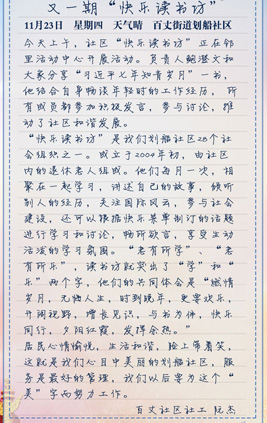 又一期“快乐读书坊”
11月23日 星期四 天气晴 百丈街道划船社区
今天上午，社区“快乐读书坊”正在邻
里活动中心开展活动。负责人鲍澄文和
大家分享“习近平七年知青岁月”一书，
他结合自身畅谈年轻时的工作经历，所
有成员都参加积极发言，参与讨论，推
动了社区和谐发展。
“快乐读书坊”是我们划船社区28个社
会组织之一。成立于2004年初，由社区
内的退休老人组成。他们每月一次，相
聚在一起学习，讲述自己的故事，倾听
别人的经历，关注国际风云，参与社会
建设，还可以根据快乐菜单制订的话题
进行学习和讨论，畅所欲言，享受生动
活泼的学习氛围。“老有所学”、“老
有所乐”，读书坊就突出了“学”和“
乐”两个字，他们的共同体会是“燃情
岁月，无悔人生，时到晚年，更要欢乐，
开阔视野，增长见识，与书为伴，快乐
同行，夕阳红霞，发得余热。”
居民心情愉悦，生活和谐，脸上带着笑，
这就是我们心目中美丽的划船社区，服
务是最好的管理，我们以后要为这个“
美”字而努力工作。
百丈社区社工 阮杰